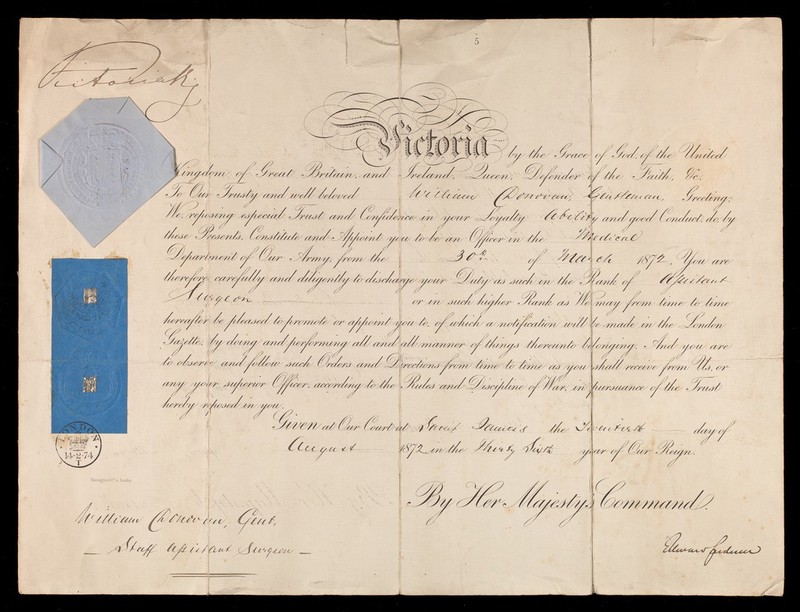 5
Victoria R
Victoria by the Grace of God, of the United
Kingdom of Great Britain, and Ireland, Queen, Defender of the Faith, &c.
To Our Trusty and well beloved William Donovan, Gentleman, Greeting:
We, reposing especial Trust and Confidence in your Loyalty Ability and good Conduct, do, by
these Presents, Constitute and Appoint you to be an Officer in the Medical
Department of Our Army, from the 30th of March 1872. You are
therefore carefully and diligently to discharge your Duty as such in the Rank of Assistant
Surgeon or in such higher Rank as We may from time to time
hereafter be pleased to promote or appoint you to, of which a notification will be made in the London
Gazette, by doing and performing all and all manner of things thereunto belonging. And you are
to observe and follow such Orders and Directions from time to time as you shall receive from Us, or
any your superior Officer, according to the Rules and Discipline of War, in pursuance of the Trust
hereby reposed in you.
Given at Our Court at Saint James's the Twentieth day of
August 1872 in the Thirty Sixth year of Our Reign.
By Her Majesty's Command.
LONDON
14·2·74
William Donovan, Gent.
Staff Assistant Surgeon
Edward Cardwell